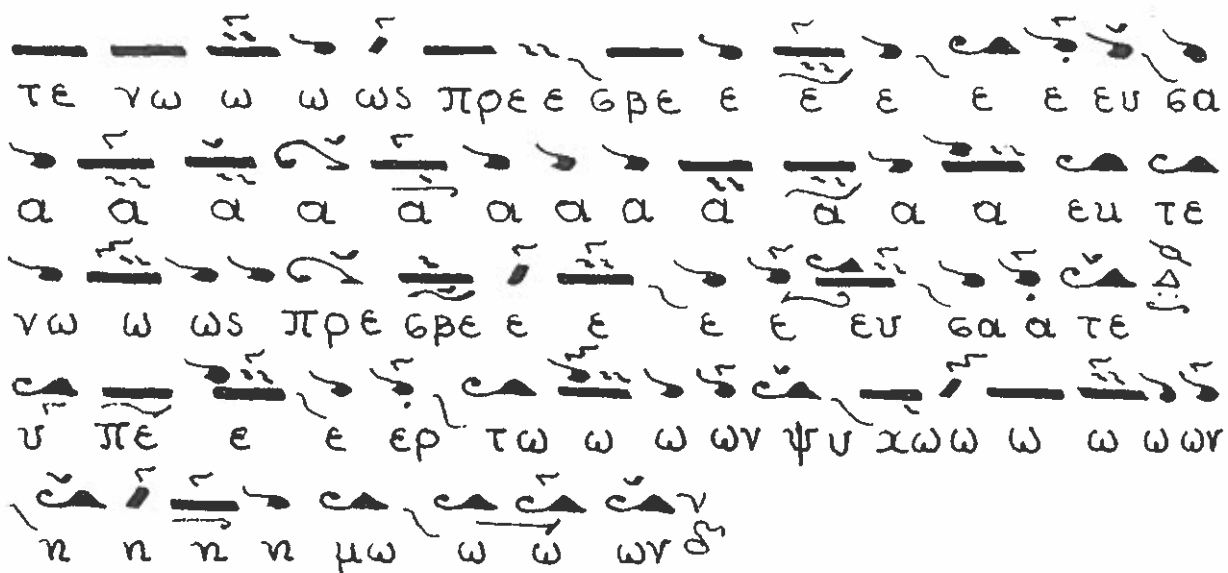 τε νω ω ω ως πρε ε σβε ε ε ε ε ε ευ σα
α α α α α α α α α α α α ει τε
νω ω ως πρε σβε ε ε ε ε ευ σα α τε
υ πε ε ε ερ τω ω ω ων ψυ χω ω ω ω ω ων
η η η η μω ω ω ων